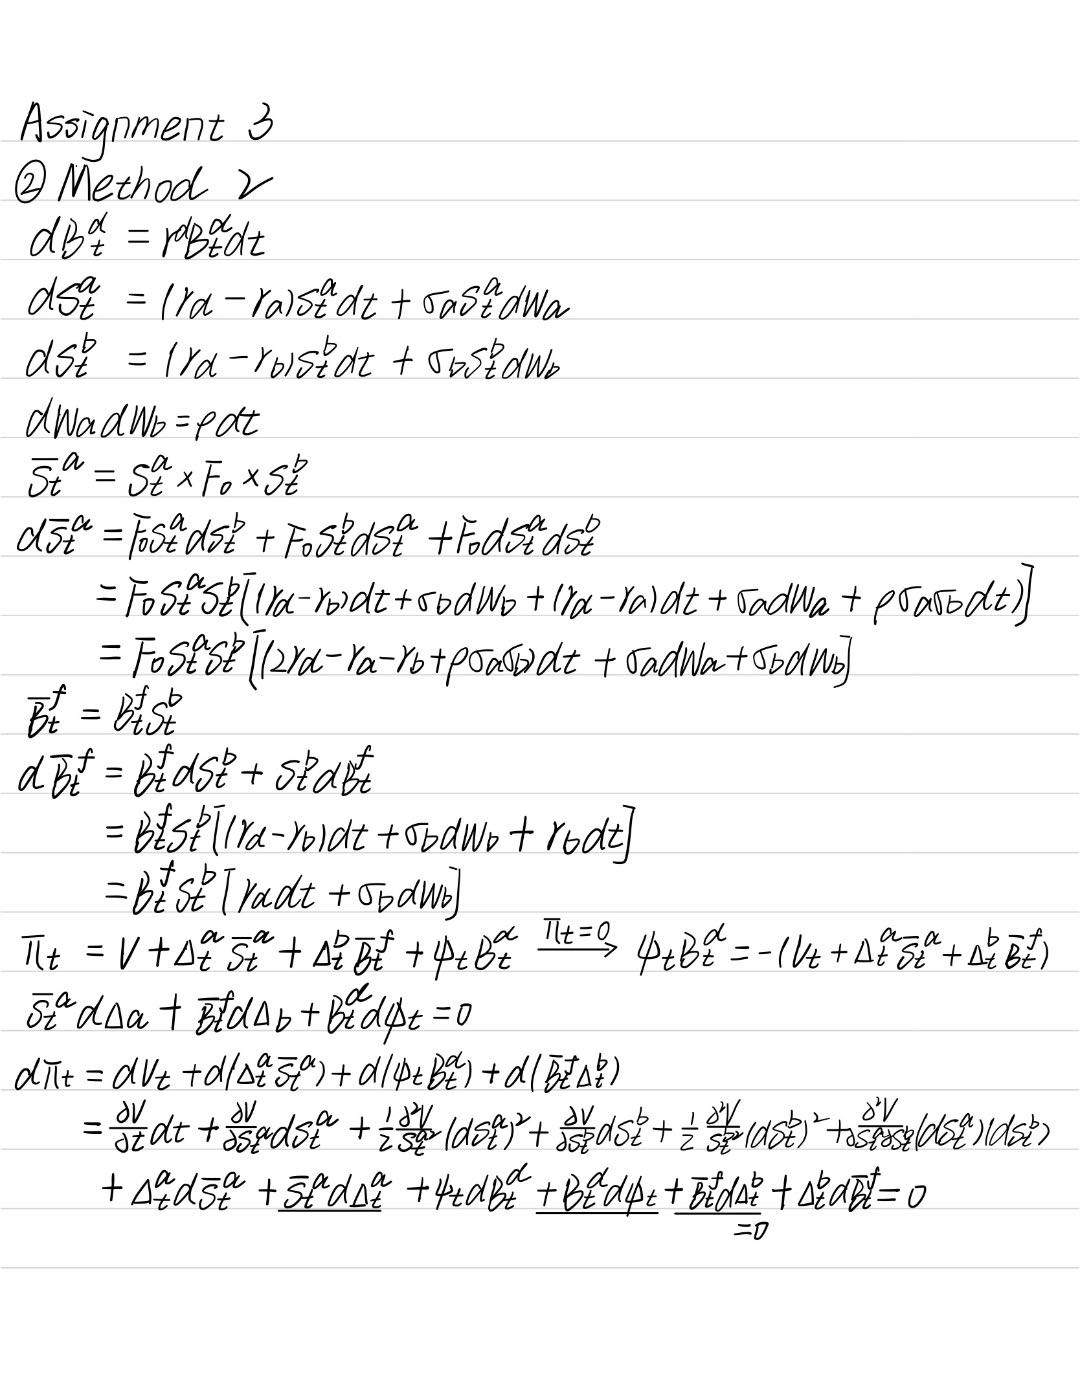 Assignment 3
② Method 2
dB_t^d = r^d B_t^d dt
dS_t^a = (r_d - r_a)S_t^a dt + σ_a S_t^a dW_a
dS_t^b = (r_d - r_b)S_t^b dt + σ_b S_t^b dW_b
dW_a dW_b = ρdt
S̅_t^a = S_t^a × F_0 × S_t^b
dS̅_t^a = F_0 S_t^a dS_t^b + F_0 S_t^b dS_t^a + F_0 dS_t^a dS_t^b
= F_0 S_t^a S_t^b [(r_d - r_b)dt + σ_b dW_b + (r_d - r_a)dt + σ_a dW_a + ρσ_aσ_b dt)]
= F_0 S_t^a S_t^b [(2r_d - r_a - r_b + ρσ_aσ_b)dt + σ_a dW_a + σ_b dW_b]
B̅_t^f = B_t^f S_t^b
dB̅_t^f = B_t^f dS_t^b + S_t^b dB_t^f
= B_t^f S_t^b [(r_d - r_b)dt + σ_b dW_b + r_b dt]
= B_t^f S_t^b [r_d dt + σ_b dW_b]
π_t = V + Δ_t^a S̅_t^a + Δ_t^b B̅_t^f + ψ_t B_t^d —π_t=0→ ψ_t B_t^d = -(V_t + Δ_t^a S̅_t^a + Δ_t^b B̅_t^f)
S̅_t^a dΔ_a + B̅_t^f dΔ_b + B_t^d dψ_t = 0
dπ_t = dV_t + d(Δ_t^a S̅_t^a) + d(ψ_t B_t^d) + d(B̅_t^f Δ_t^b)
= ∂V/∂t dt + ∂V/∂S_t^a dS_t^a + 1/2 ∂²V/S_t^a² (dS_t^a)² + ∂V/∂S_t^b dS_t^b + 1/2 ∂²V/S_t^b² (dS_t^b)² + ∂²V/∂S_t^a∂S_t^b (dS_t^a)(dS_t^b)
+ Δ_t^a dS̅_t^a + S̅_t^a dΔ_t^a + ψ_t dB_t^d + B_t^d dψ_t + B̅_t^f dΔ_t^b + Δ_t^b dB̅_t^f = 0
=0